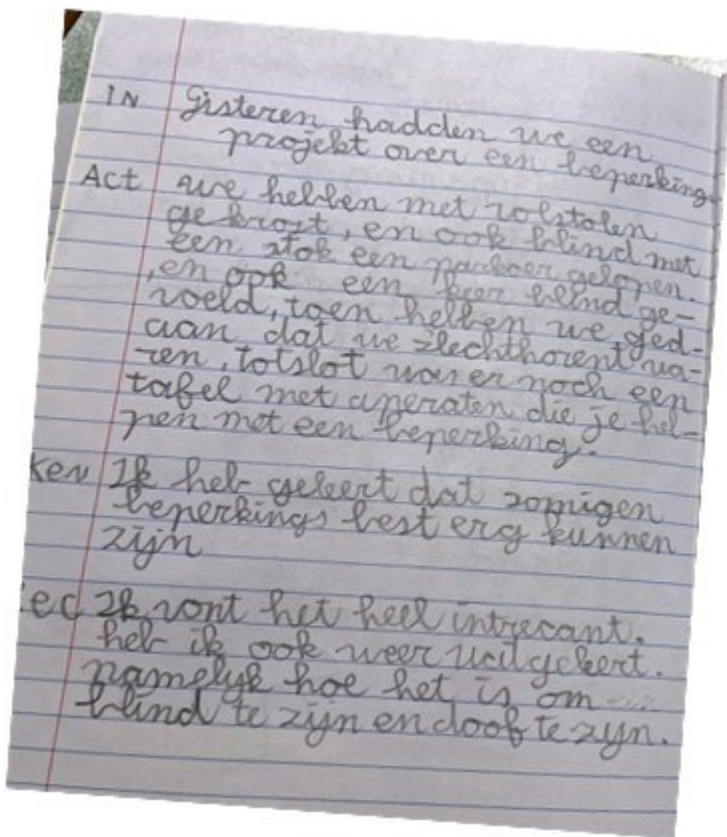 IN Gisteren hadden we een
projekt over een beperking.
Act we hebben met rolstolen
gekrost, en ook blind met
een stok een parkoer gelopen.
, en ook een keer blind ge-
voeld, toen hebben we ged-
aan dat we slechthorent wa-
ren, totslot was er noch een
tafel met aperaten die je hel-
pen met een beperking.
ken Ik heb geleert dat somigen
beperkings best erg kunnen
zijn
ec Ik vont het heel intresant.
heb ik ook weer geleert.
namelyk hoe het is om
blind te zijn en doof te zyn.